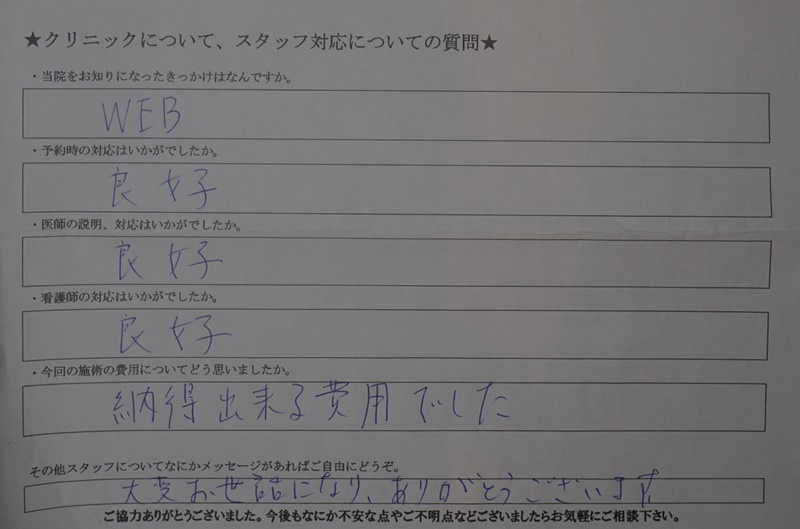 ★クリニックについて、スタッフ対応についての質問★
・当院をお知りになったきっかけはなんですか。
WEB
・予約時の対応はいかがでしたか。
良好
・医師の説明、対応はいかがでしたか。
良好
・看護師の対応はいかがでしたか。
良好
・今回の施術の費用についてどう思いましたか。
納得出来る費用でした
その他スタッフについてなにかメッセージがあればご自由にどうぞ。
大変お世話になり、ありがとうございます
ご協力ありがとうございました。今後もなにか不安な点やご不明点などございましたらお気軽にご相談下さい。